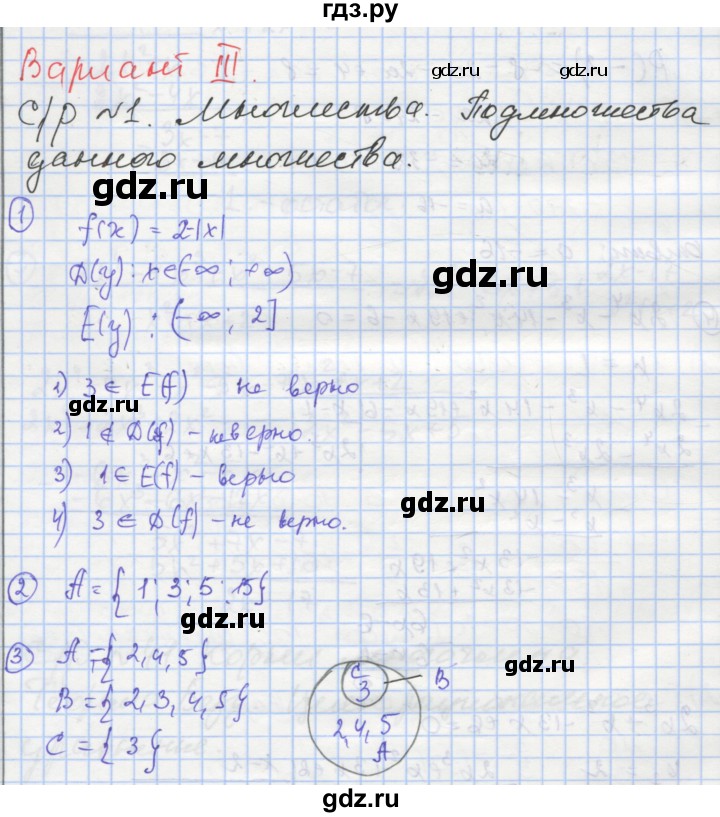 гдз.ру
Вариант III.
С/р №1. Множества. Подмножества
данного множества.
1 f(x) = 2-|x|
D(y): x∈(-∞; +∞)
E(y): (-∞; 2]
1) 3 ∈ E(f) не верно
2) 1 ∉ D(f) – неверно.
3) 1 ∈ E(f) – верно
4) 3 ∈ D(f) – не верно.
2 A = { 1; 3; 5; 15}
3 A = { 2, 4, 5}
B = { 2, 3, 4, 5}
C = { 3}
C
3
B
2, 4, 5
A
gdz.ru
gdz.ru
gdz.ru
gdz.ru
gdz.ru
gdz.ru
gdz.ru
gdz.ru
gdz.ru
gdz.ru